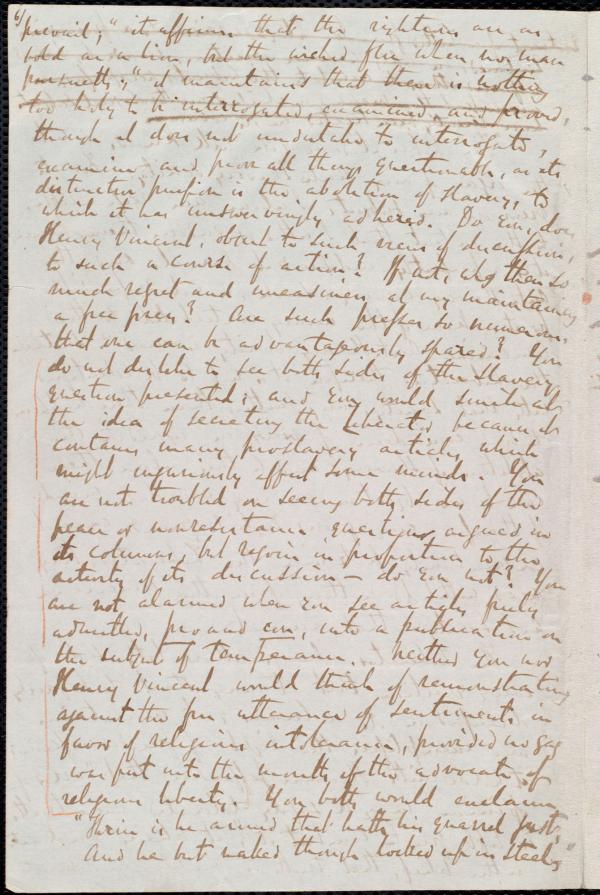 6/
prevail;" it affirms that the righteous are as
bold as a lion, but the wicked flee when no man
pursueth;" it maintains that there is nothing
too holy to be interrogated, examined, and proved,
though it does not undertake to interrogate,
examine and prove all things questionable, as its
distinctive purpose is the abolition of slavery, to
which it has unswervingly adhered. Do you, does
Henry Vincent, object to such views of discussion,
to such a course of action? If not, why then so
much regret and uneasiness at my maintaining
a free press? Are such presses so numerous
that one can be advantageously spared? You
do not dislike to see both sides of the slavery
question presented; and you would smile at
the idea of secreting the Liberator because it
contains many proslavery articles, which
might injuriously affect some minds. You
are not troubled on seeing both sides of the
peace or nonresistance questions, argued in
its columns, but rejoice in proportion to the
activity of its discussion — do you not? You
are not alarmed when you see articles freely
admitted, pro and con, into a publication on
the subject of temperance. Neither you nor
Henry Vincent would think of remonstrating
against the free utterance of sentiments in
favor of religious intolerance, provided no gag
was put into the mouth of the advocate of
religious liberty. You both would exclaim,
"Thrice is he armed that hath his quarrel just,
And he but naked though locked up in steel,"